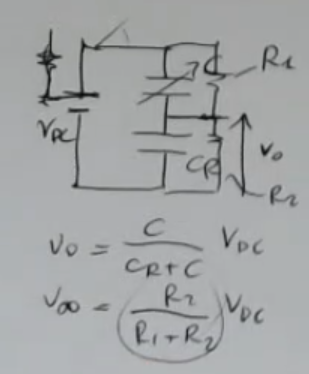 R1
VDC
CR
Vo
R2
Vo = C / CR + C VDC
V∞ = R2 / R1 + R2 VDC